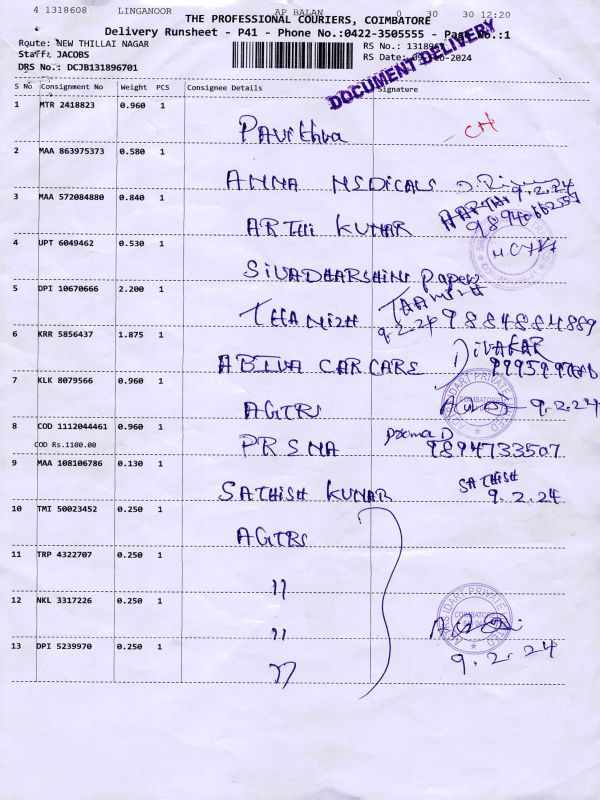 4 1318608 LINGANOOR AP BALAN 0 30 30 12:20
THE PROFESSIONAL COURIERS, COIMBATORE
Delivery Runsheet - P41 - Phone No.:0422-3505555 - Page No.:1
Route: NEW THILLAI NAGAR RS No.: 1318967
Staff: JACOBS RS Date: -2024
DRS No.: DCJB131896701
DOCUMENT DELIVERY
S No Consignment No Weight PCS Consignee Details Signature
1 MTR 2418823 0.960 1
Pavithva
2 MAA 863975373 0.580 1
ANNA MSDICALS 9.2.24
3 MAA 572084880 0.840 1
ARTHI KUNAR AARTHI
4 UPT 6049462 0.530 1
SIVADHARSHINI papers
5 DPI 10670666 2.200 1
THAMIZH 9.2.24 9884884889
6 KRR 5856437 1.875 1
ABIVA CAR CARS DIVAKAR
7 KLK 8079566 0.960 1
AGTRS 9.2.24
8 COD 1112044461 0.960 1
COD Rs.1100.00
PRSNA Prema D
9894733507
9 MAA 108106786 0.130 1
SATHISH KUNAR SATHISH
9.2.24
10 TMI 50023452 0.250 1
AGTRS
11 TRP 4322707 0.250 1
"
12 NKL 3317226 0.250 1
"
13 DPI 5239970 0.250 1
"
9.2.24